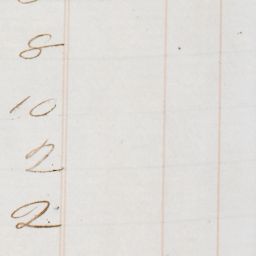 8
10
2
2